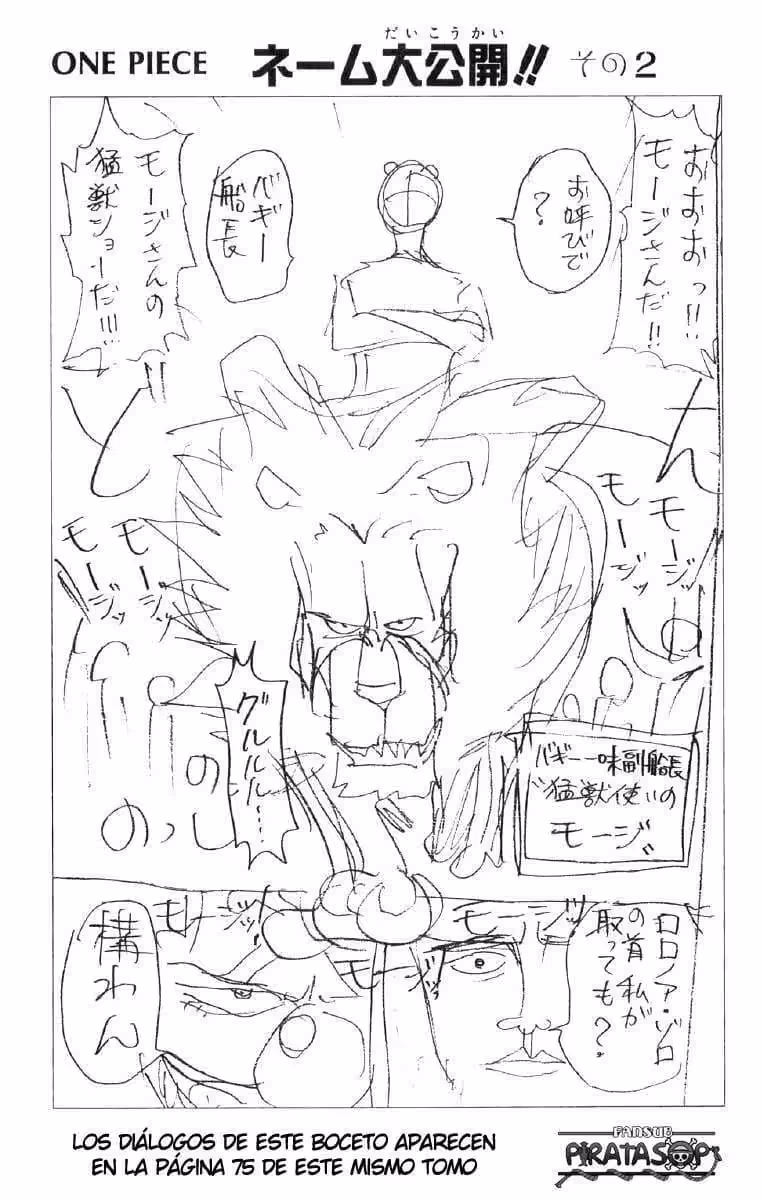 だいこうかい
ONE PIECE ネーム大公開!! その2
おおおっ!!
モージさんだ!!
お呼びで
?
バギー
船長
モージさんの
猛獣ショーだ!!!
モージッ
モージッ
モージッ
モージッ
グルルル…
のっし
の
の
バギー一味副船長
"猛獣使い"の
モージ
モージッ!
モージッ
モージッ!
ロロノア・ゾロ
の首 私が
取っても?
構わん
LOS DIÁLOGOS DE ESTE BOCETO APARECEN
EN LA PÁGINA 75 DE ESTE MISMO TOMO
FANSUB
PIRATASOP